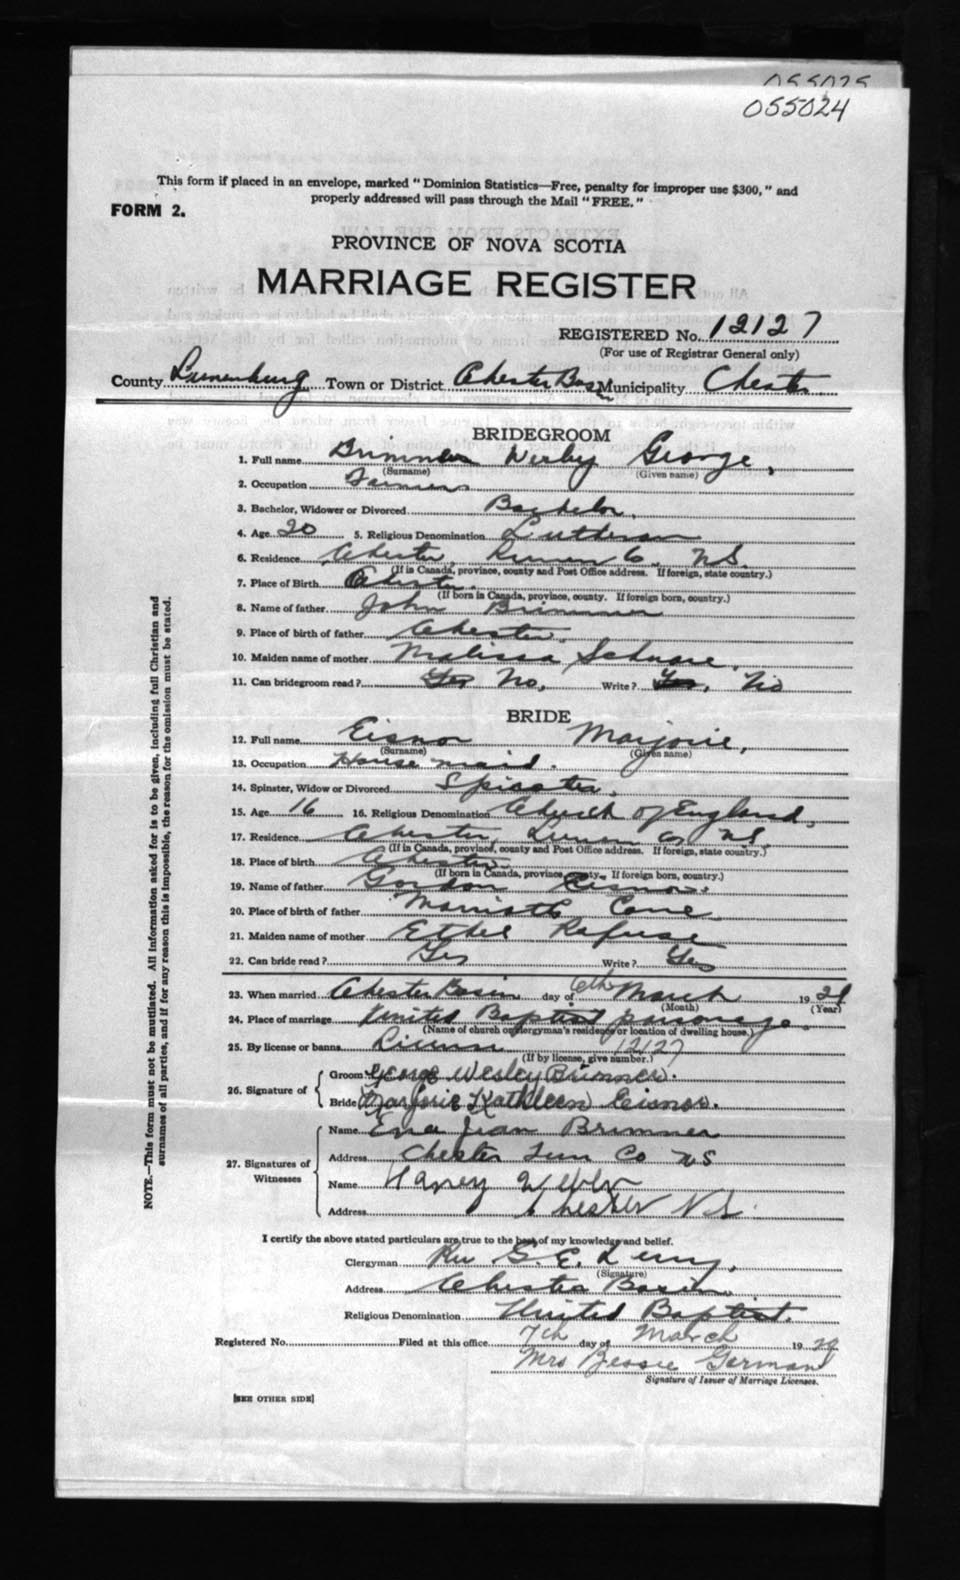 055025
055024
This form if placed in an envelope, marked "Dominion Statistics—Free, penalty for improper use $300," and
properly addressed will pass through the Mail "FREE."
FORM 2.
PROVINCE OF NOVA SCOTIA
MARRIAGE REGISTER
REGISTERED No. 12127
(For use of Registrar General only)
County Lunenburg Town or District Chester Basin Municipality Chester
BRIDEGROOM
1. Full name Brimner Wesley George,
(Surname) (Given name)
2. Occupation Farmer
3. Bachelor, Widower or Divorced Bachelor.
4. Age 20 5. Religious Denomination Lutheran
6. Residence Chester, Lunen Co. N.S.
(If in Canada, province, county and Post Office address. If foreign, state country.)
7. Place of Birth Chester.
(If born in Canada, province, county. If foreign born, country.)
8. Name of father John Brimner
9. Place of birth of father Chester.
10. Maiden name of mother Malissa Schnare.
11. Can bridegroom read? Yes No, Write? Yes, No
BRIDE
12. Full name Eisnor Marjorie,
(Surname) (Given name)
13. Occupation House maid.
14. Spinster, Widow or Divorced Spinster.
15. Age 16 16. Religious Denomination Church of England,
17. Residence Chester, Lunen Co N.S.
(If in Canada, province, county and Post Office address. If foreign, state country.)
18. Place of birth Chester
(If born in Canada, province, county. If foreign born, country.)
19. Name of father Gordon Eisnor.
20. Place of birth of father Cove
21. Maiden name of mother Ethel Rafuse
22. Can bride read? Yes Write? Yes
23. When married Chester Basin day of 6th March 19
(Month) (Year)
24. Place of marriage United Baptist parsonage.
(Name of church or clergyman's residence or location of dwelling house.)
25. By license or banns License 12127
(If by license, give number.)
26. Signature of
Groom George Wesley Brimner.
Bride Marjorie Kathleen Eisnor.
27. Signatures of Witnesses
Name Ena Jean Brimner
Address Chester Lun Co NS
Name Harvey Webber
Address Chester N.S.
I certify the above stated particulars are true to the best of my knowledge and belief.
Clergyman Rev G. E. Levy.
(Signature)
Address Chester Basin
Religious Denomination United Baptist.
Registered No. Filed at this office 7th day of March 19
Mrs Bessie Gorman
Signature of Issuer of Marriage Licenses.
[SEE OTHER SIDE]
NOTE.—This form must not be mutilated. All information asked for is to be given, including full Christian and
surnames of all parties, and if for any reason this is impossible, the reason for the omission must be stated.